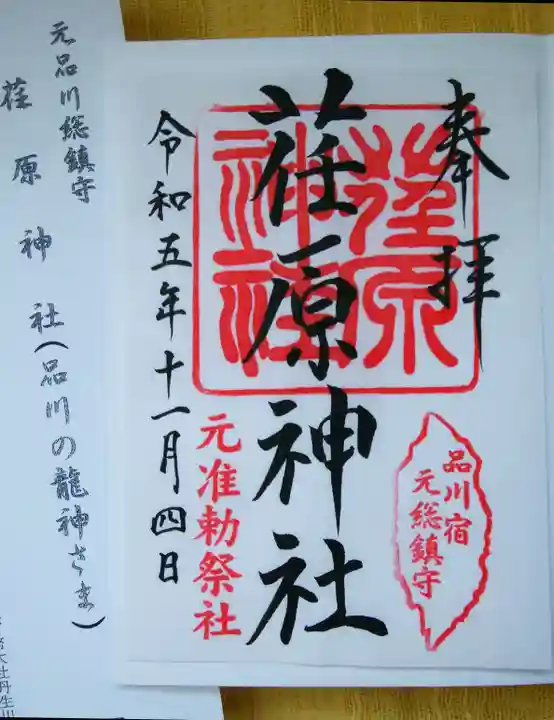 奉拝
荏原神社
荏原
神社
令和五年十一月四日
元准勅祭社
品川宿
元総鎮守
元品川総鎮守
荏原神社(品川の龍神さま)